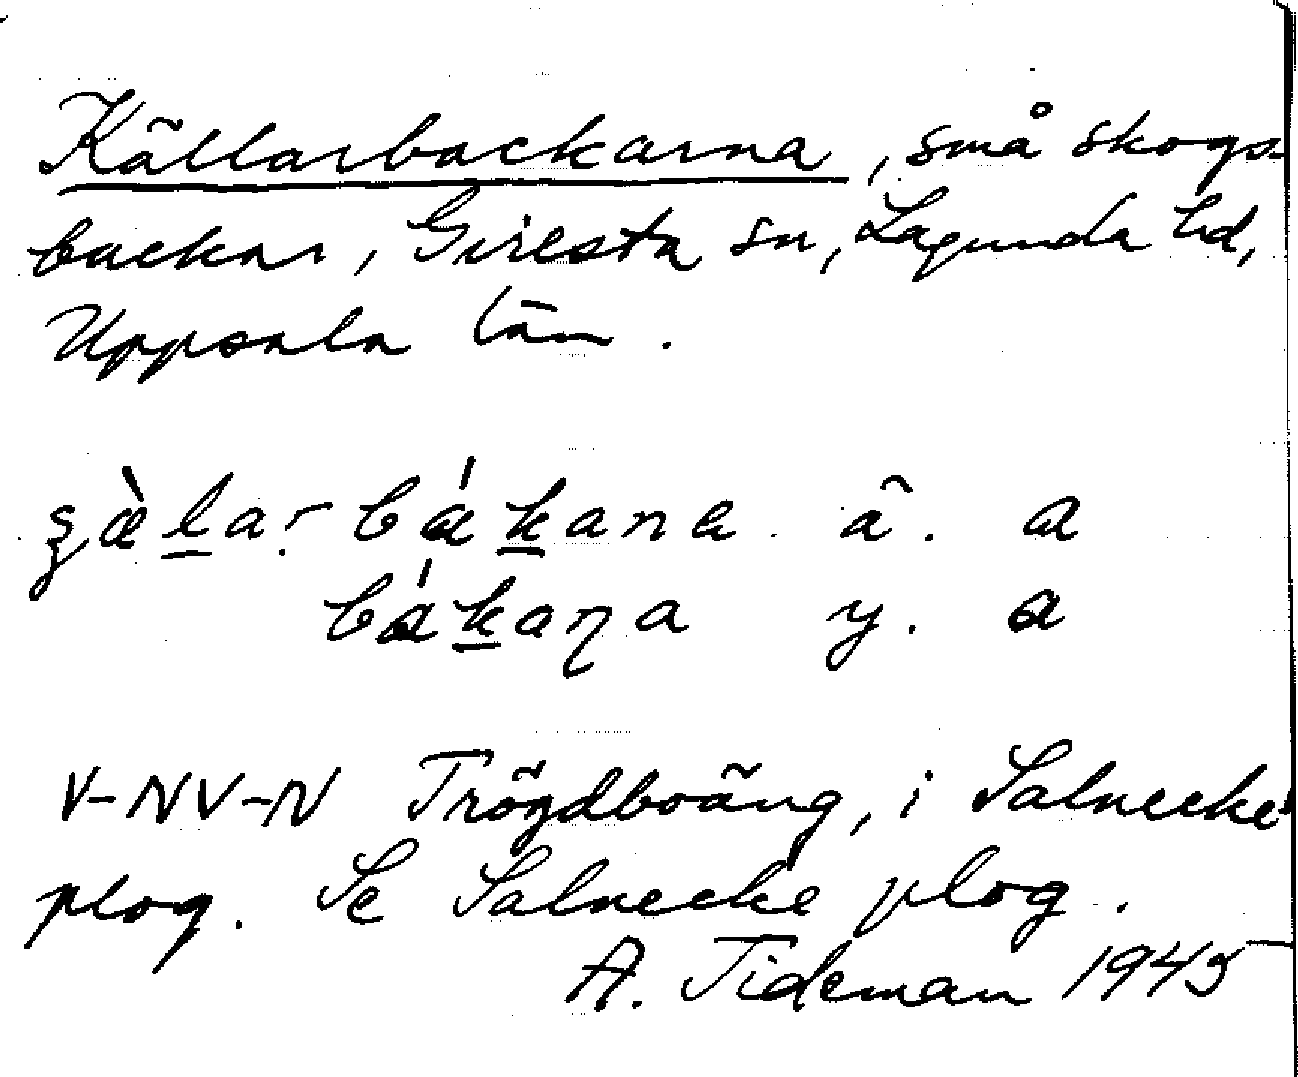 Källarbackarna, små skogs
backar, Giresta sn, Lagunda hd,
Uppsala län.
bákana y. a
V-NV-N Trögdboäng, i Salnecke
plog. Se Salnecke plog.
A. Tideman 1945